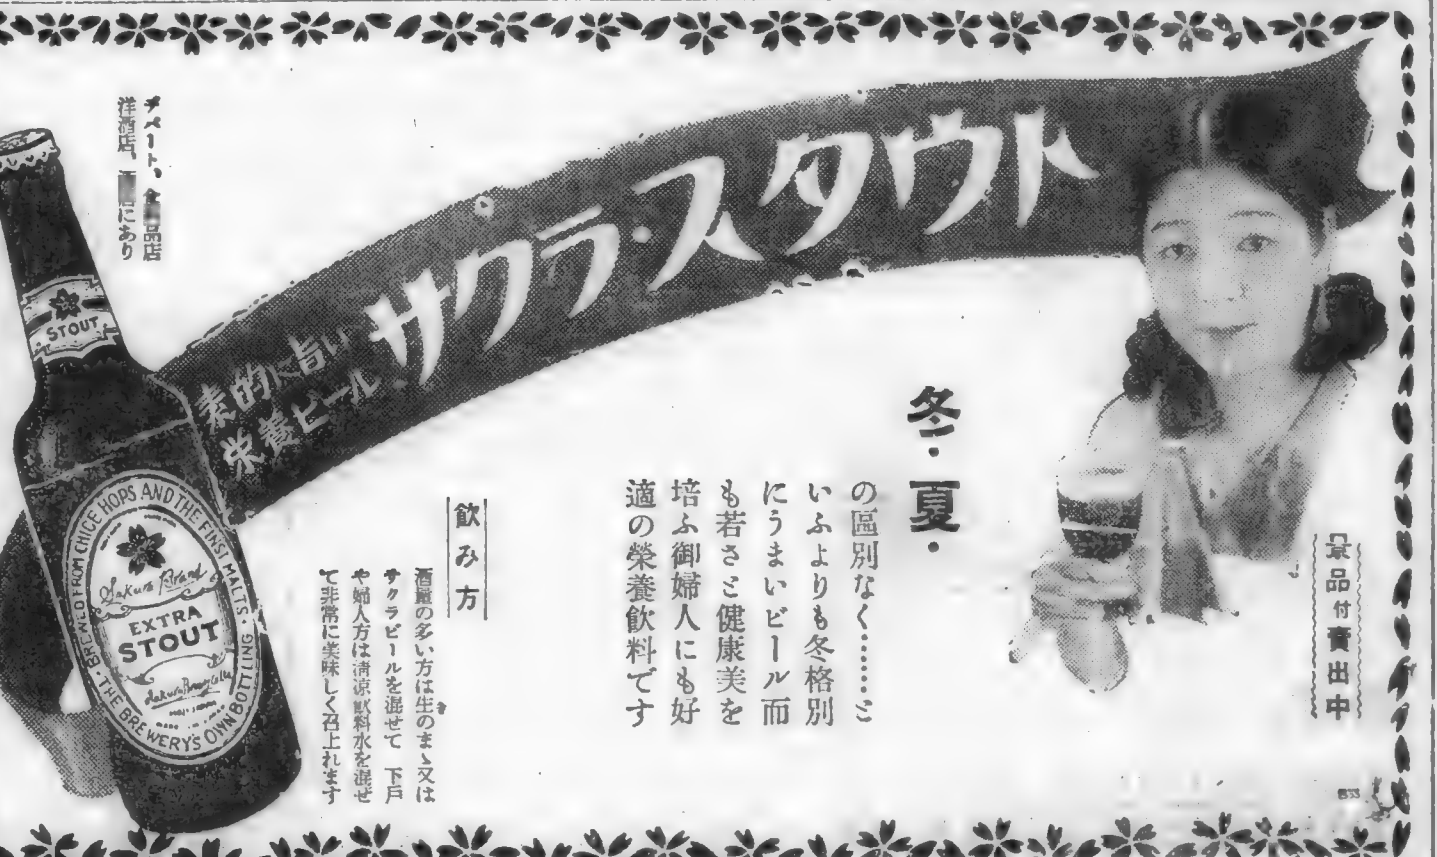 サクラ・スタウト
素的に旨い
栄養ビール
冬・夏・
の區別なく……と
いふよりも冬格別
にうまいビール而
も若さと健康美を
培ふ御婦人にも好
適の榮養飲料です
景品付賣出中
飲み方
酒量の多い方は生のまゝ又は
サクラビールを混せて 下戸
や婦人方は清涼飲料水を混ぜ
て非常に美味しく召上れます
デパート、食品店
洋酒店、にあり
STOUT
BREWED FROM CHICE HOPS AND THE FINST MALTS
Sakura Brand
EXTRA
STOUT
THE BREWERY'S OWN BOTTLING